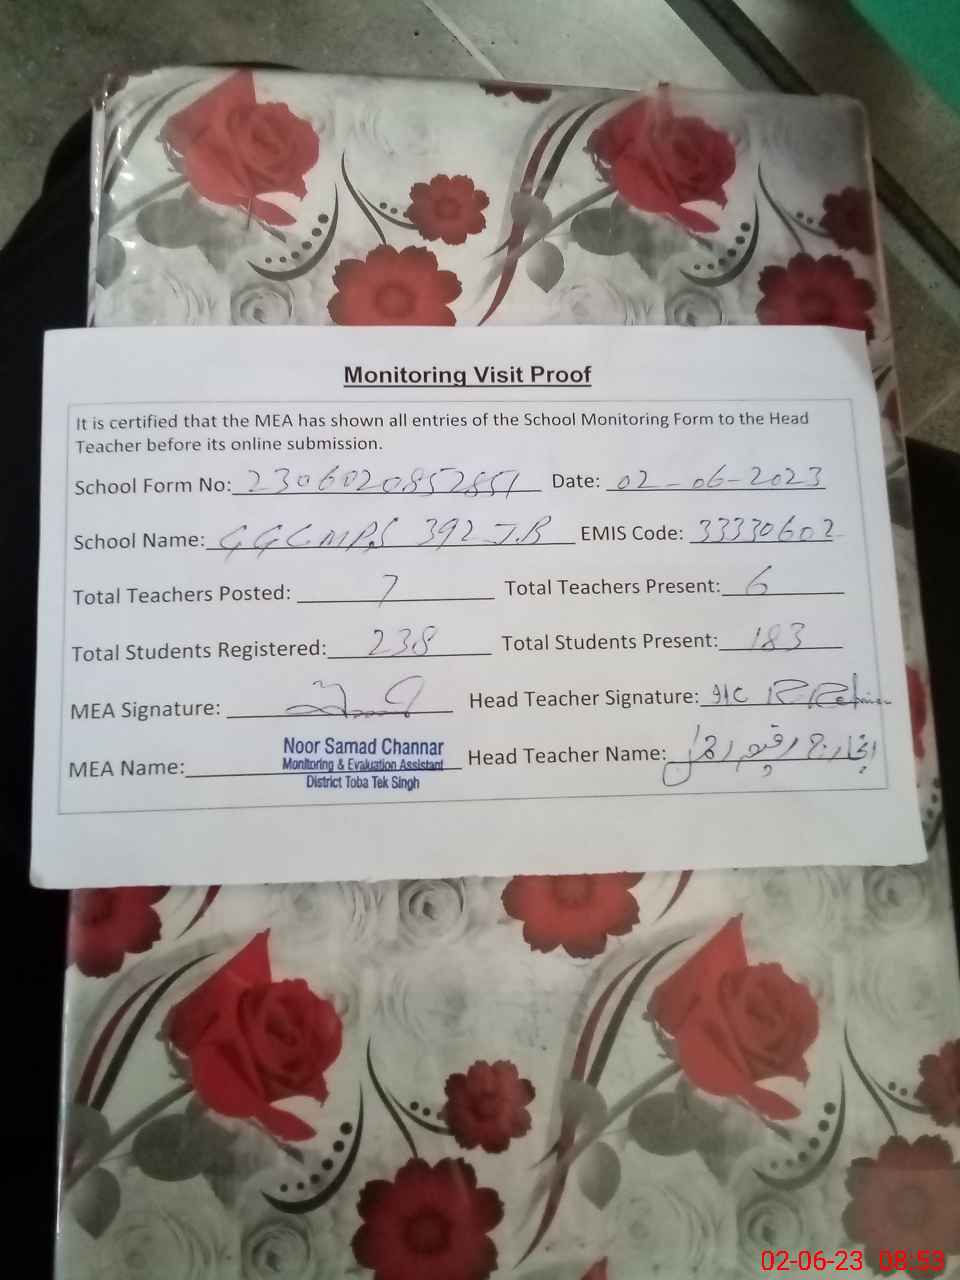 Monitoring Visit Proof
It is certified that the MEA has shown all entries of the School Monitoring Form to the Head
Teacher before its online submission.
School Form No: 2306020852851 Date: 02-06-2023
School Name: GGCMPS 392 J.B EMIS Code: 33330602
Total Teachers Posted: 7 Total Teachers Present: 6
Total Students Registered: 238 Total Students Present: 183
MEA Signature: Head Teacher Signature: I/C
MEA Name: Noor Samad Channar Head Teacher Name: انچارج
Monitoring & Evaluation Assistant
District Toba Tek Singh
02-06-23 08:53